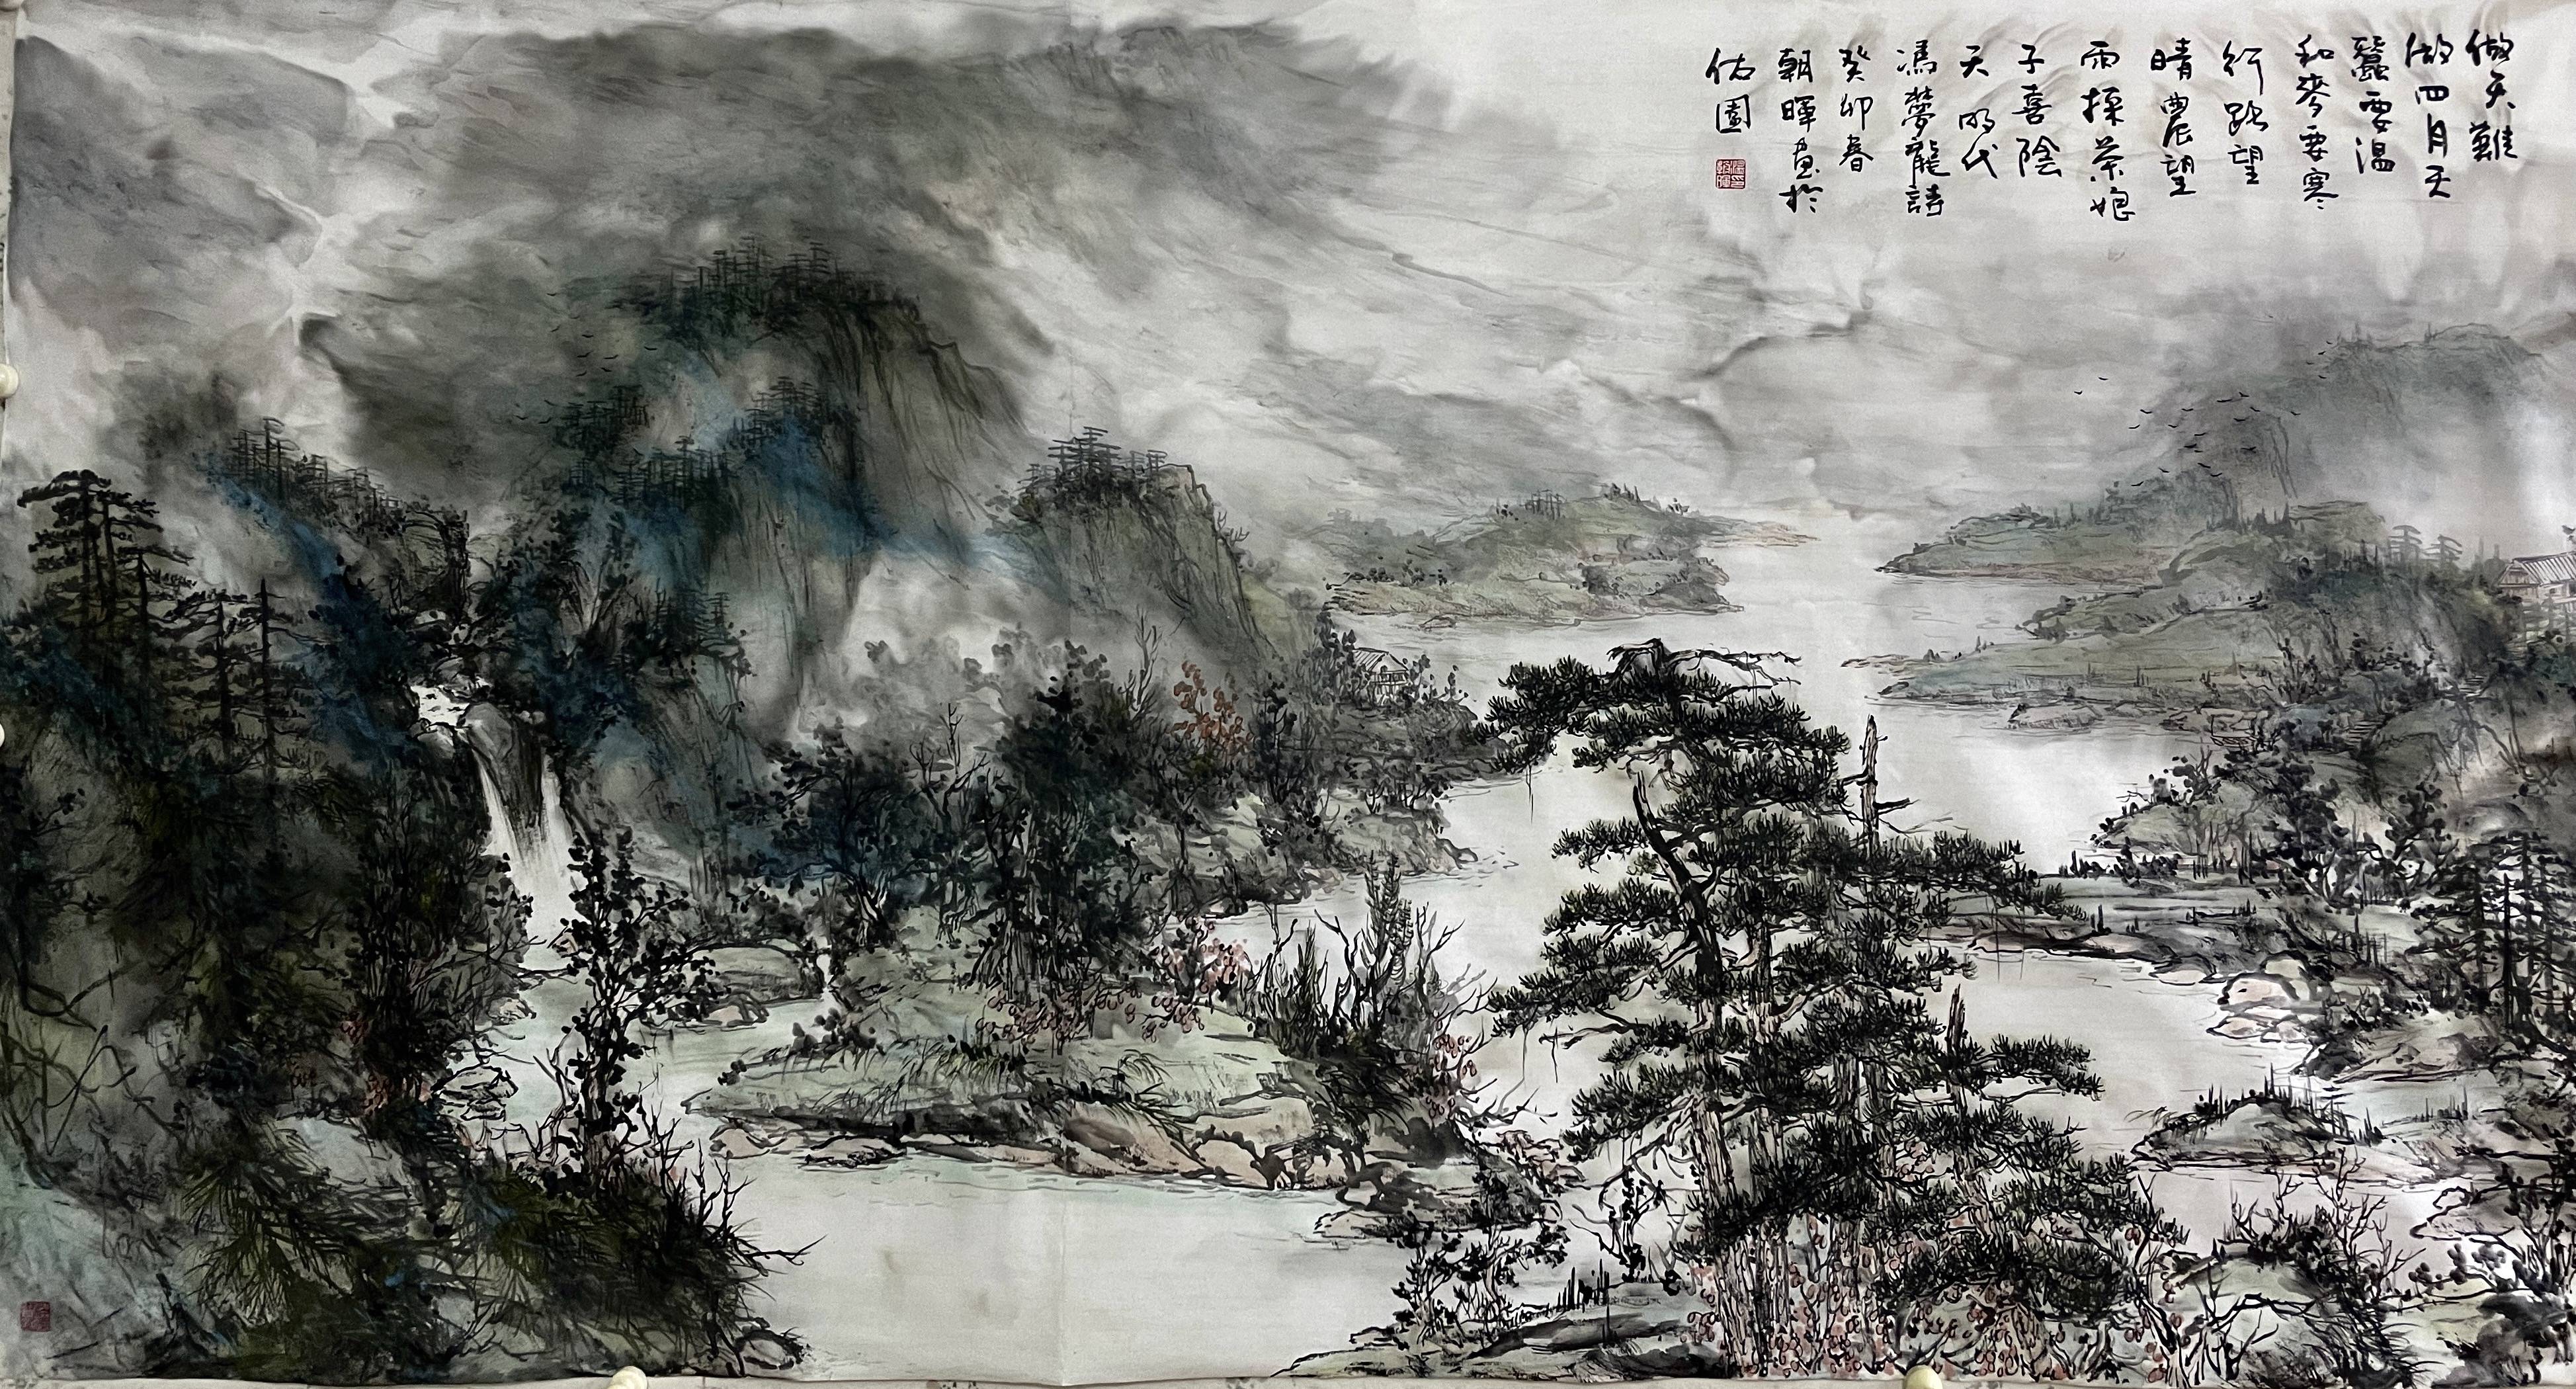 做天難
做四月天
蠶要温
和麥要寒
行路望
晴農望
雨採茶娘
子喜陰
天 明代
馮夢龍詩
癸卯春
朝暉畫於
佑園